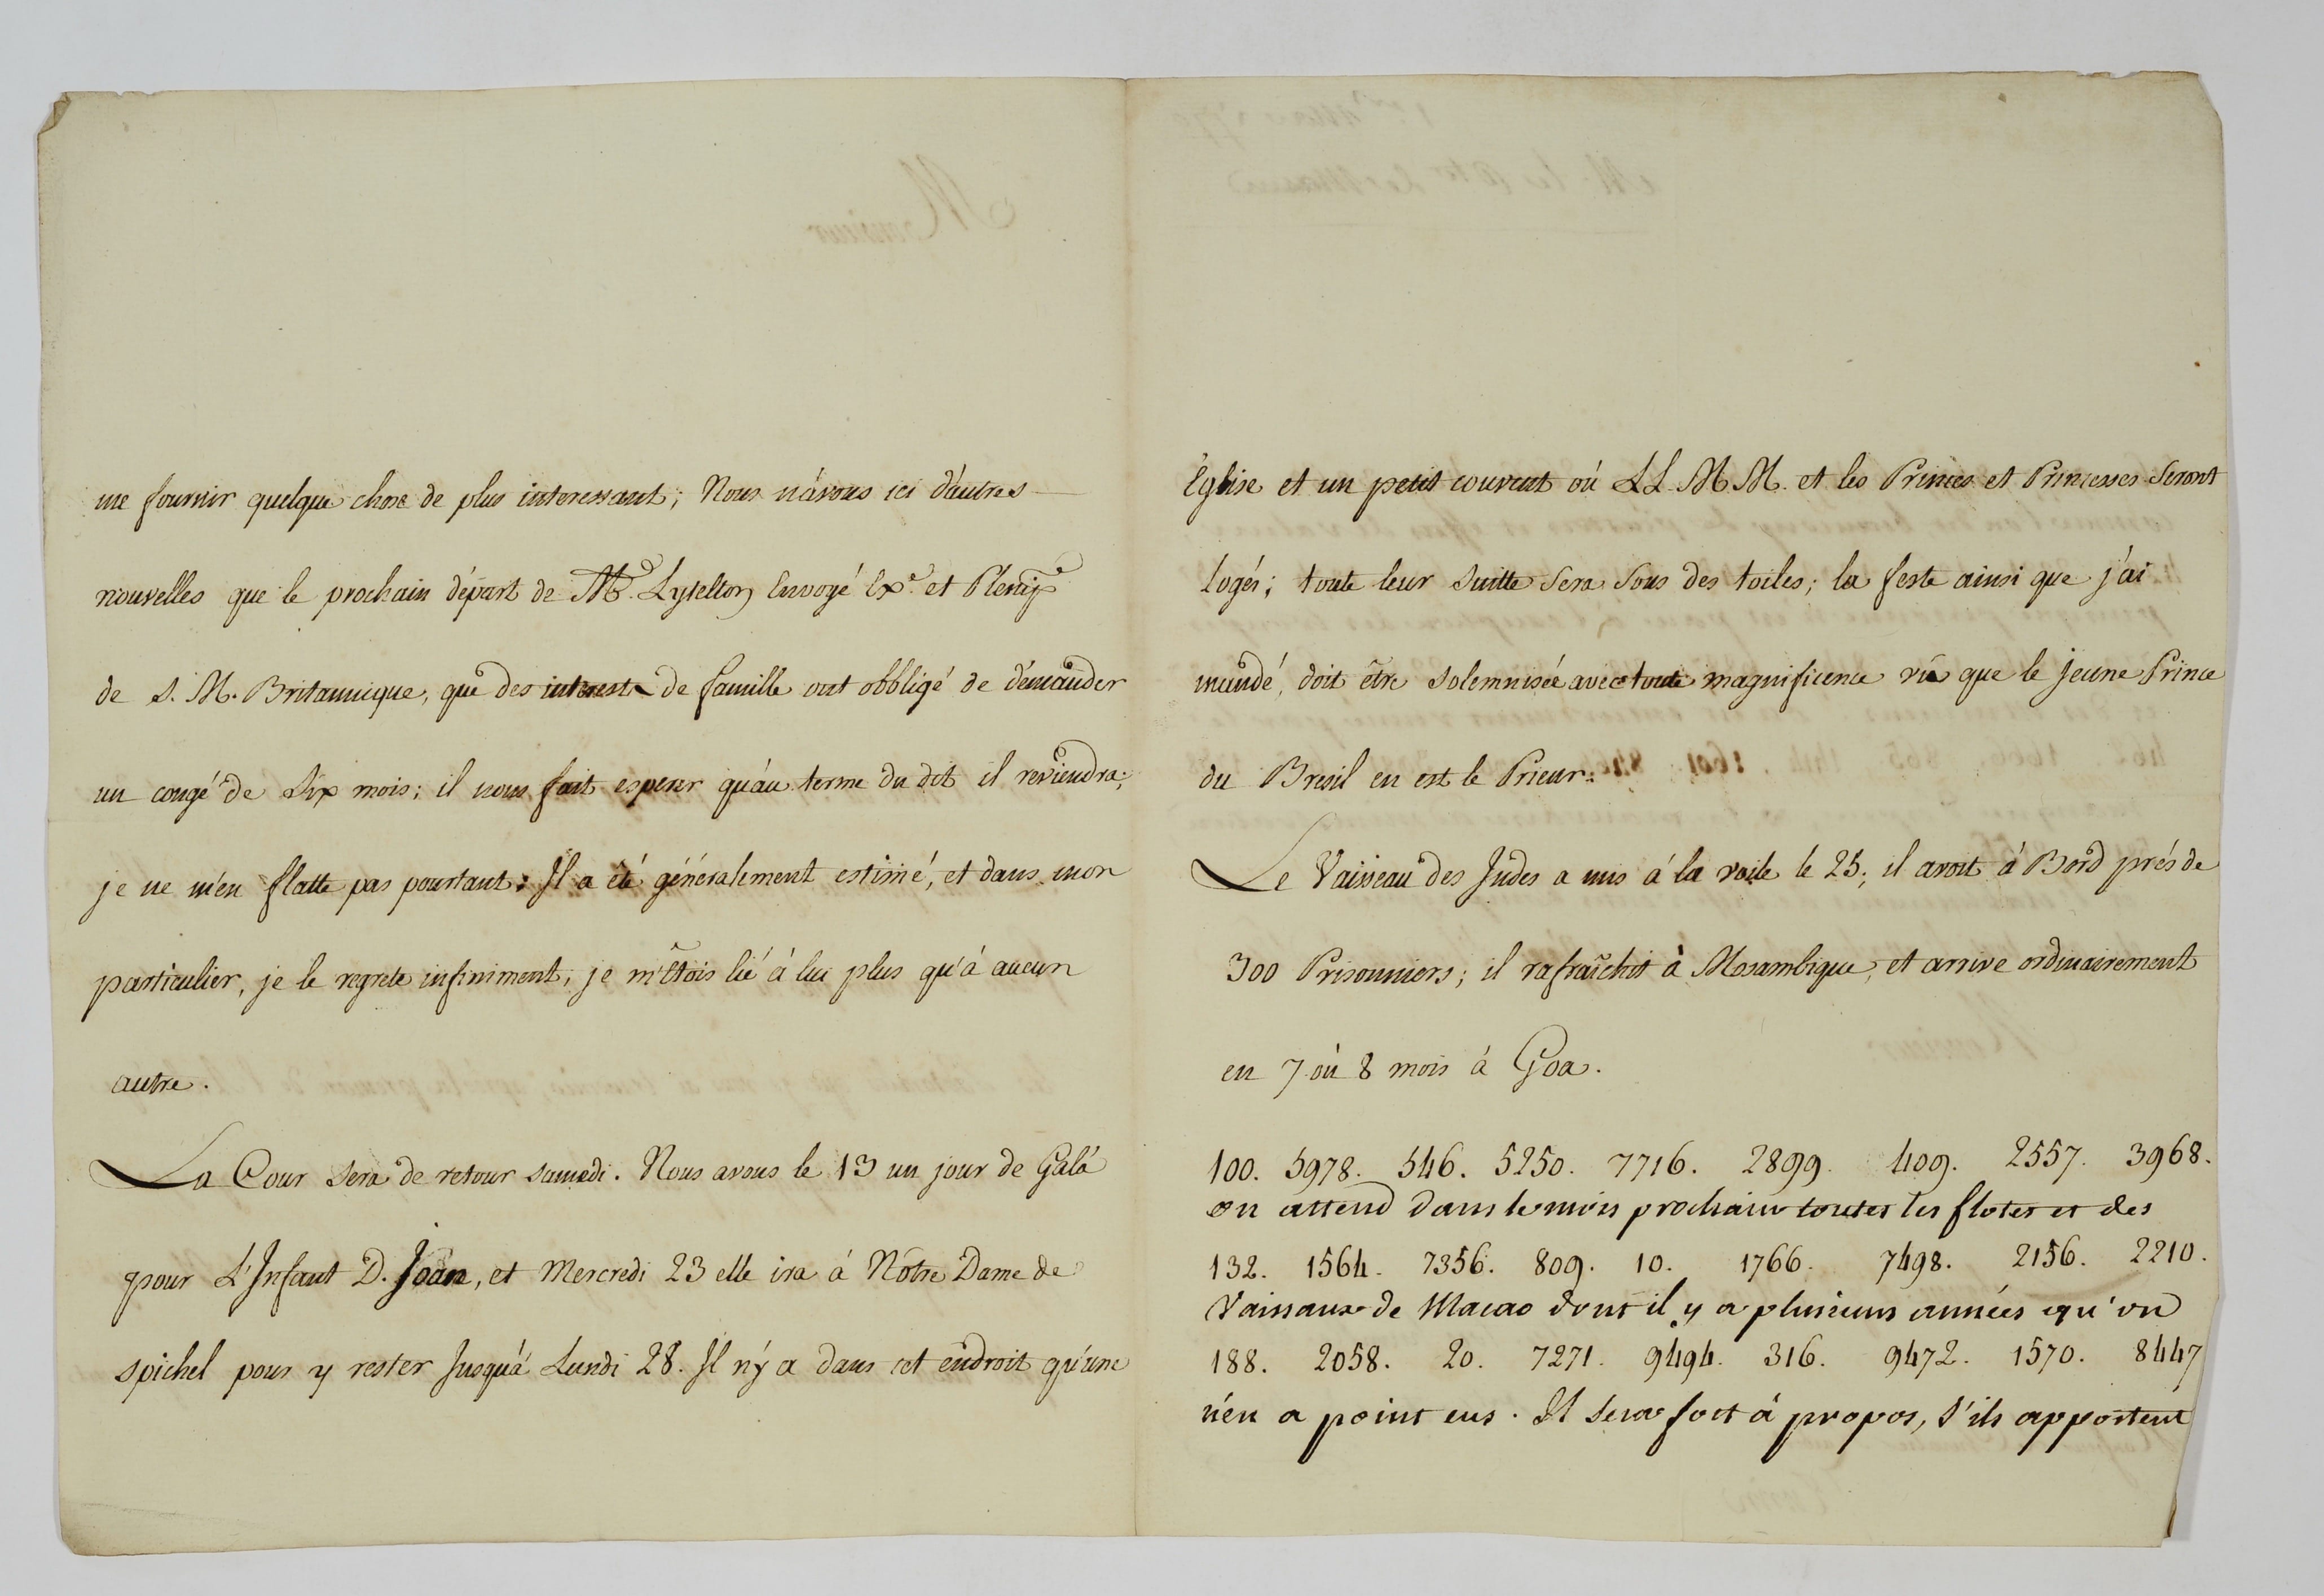 me fournir quelque chose de plus interessant; Nous n'avons ici d'autres
nouvelles que le prochain départ de Mr. Lytelton Envoyé Exe. et Plenipe
de S. M. Britannique, que des interests de famille ont obbligé de demander
un congé de Six mois; il nous fait esperer qu'au terme du dit il reviendra;
je ne m'en flatte pas pourtant; Il a été généralement estimé, et dans mon
particulier, je le regrete infiniment, je m'étois lié à lui plus qu'à aucun
autre.
La Cour sera de retour samedi. Nous avons le 13 un jour de Gala
pour L'Infant D. Joan, et Mercredi 23 elle ira à Nôtre Dame de
Spichel pour y rester Jusqu'à Lundi 28. Il n'y a dans cet endroit qu'une
Eglise et un petit couvent où LL. MM. et les Princes et Princesses Seront
logés; toute leur Suitte Sera Sous des toiles; la feste ainsi que j'ai
mandé, doit être Solemnisée avec toute magnificence vû que le Jeune Prince
du Bresil en est le Prieur.
Le Vaisseau des Indes a mis à la voile le 25; il avoit à Bord prés de
300 Prisonniers; il rafraîchit à Mosambique, et arrive ordinairement
en 7 où 8 mois à Goa.
100. 5978. 546. 5250. 7716. 2899. 409. 2557. 3968.
on attend dans le mois prochain toutes les flotes et des
132. 1564. 7356. 809. 10. 1766. 7498. 2156. 2210.
Vaissaux de Macao dont il y a plusieurs années qu'on
188. 2058. 20. 7271. 9494. 316. 9472. 1570. 8447
n'en a point eus. Il sera fort à propos, s'ils apportent